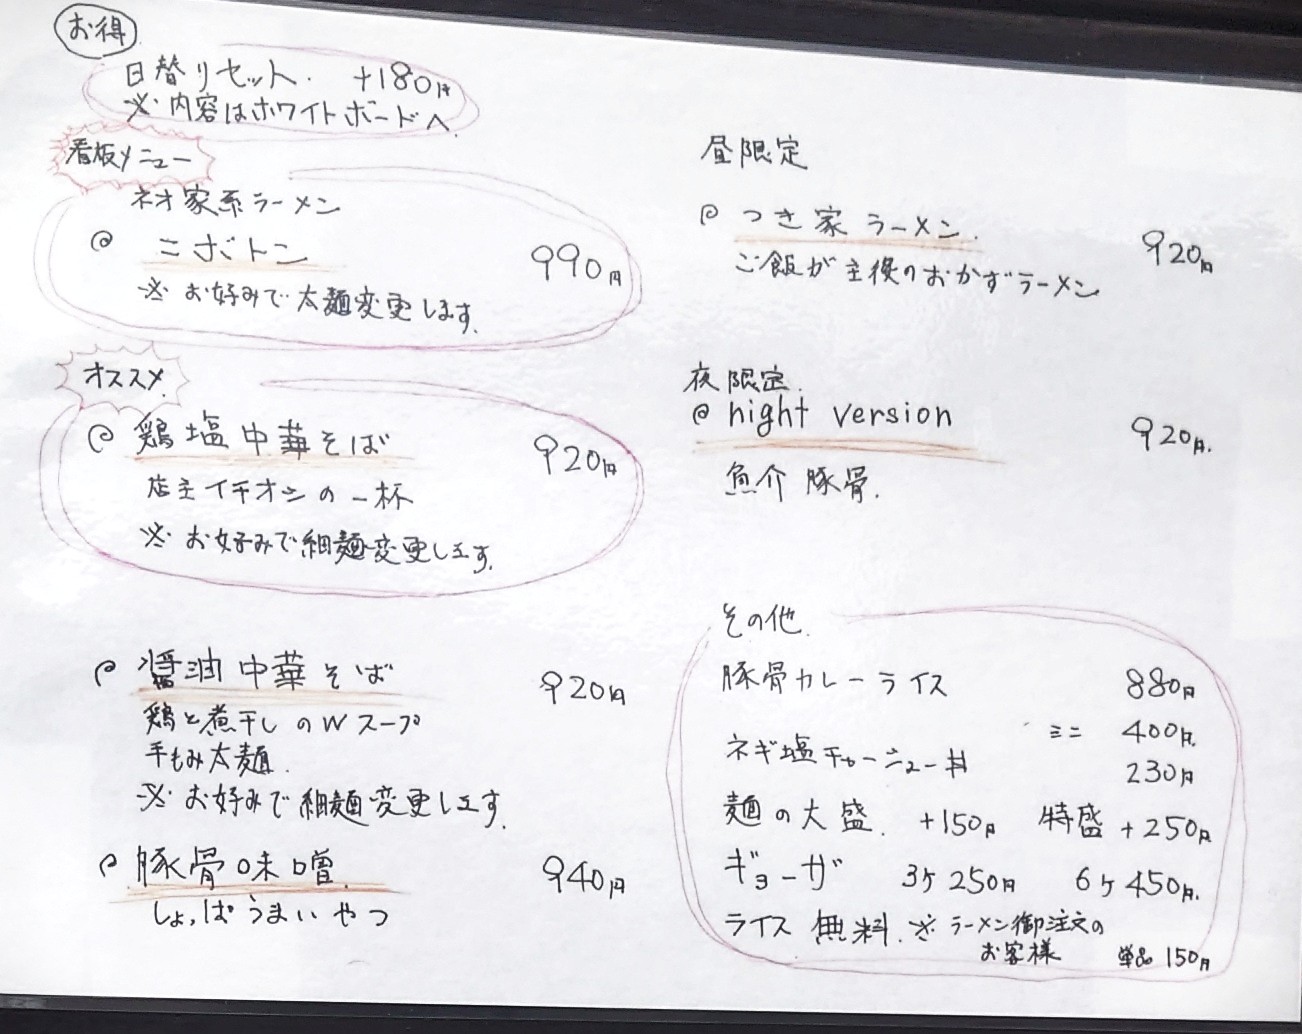 お得
日替りセット. +180円
※ 内容はホワイトボードへ.
看板メニュー
ネオ家系ラーメン
ニボトン 990円
※ お好みで太麺変更します.
オススメ.
鶏塩中華そば 920円
店主イチオシの一杯
※ お好みで細麺変更します.
醤油中華そば 920円
鶏と煮干しのWスープ
手もみ太麺.
※ お好みで細麺変更します.
豚骨味噌. 940円
しょっぱうまいやつ
昼限定
つき家ラーメン. 920円
ご飯が主役のおかずラーメン
夜限定.
night version 920円.
魚介豚骨.
その他.
豚骨カレーライス 880円
ミニ 400円.
ネギ塩チャーシュー丼 230円
麺の大盛. +150円 特盛 +250円
ギョーザ 3ヶ 250円 6ヶ 450円.
ライス 無料. ※ ラーメン御注文の
お客様 単品 150円